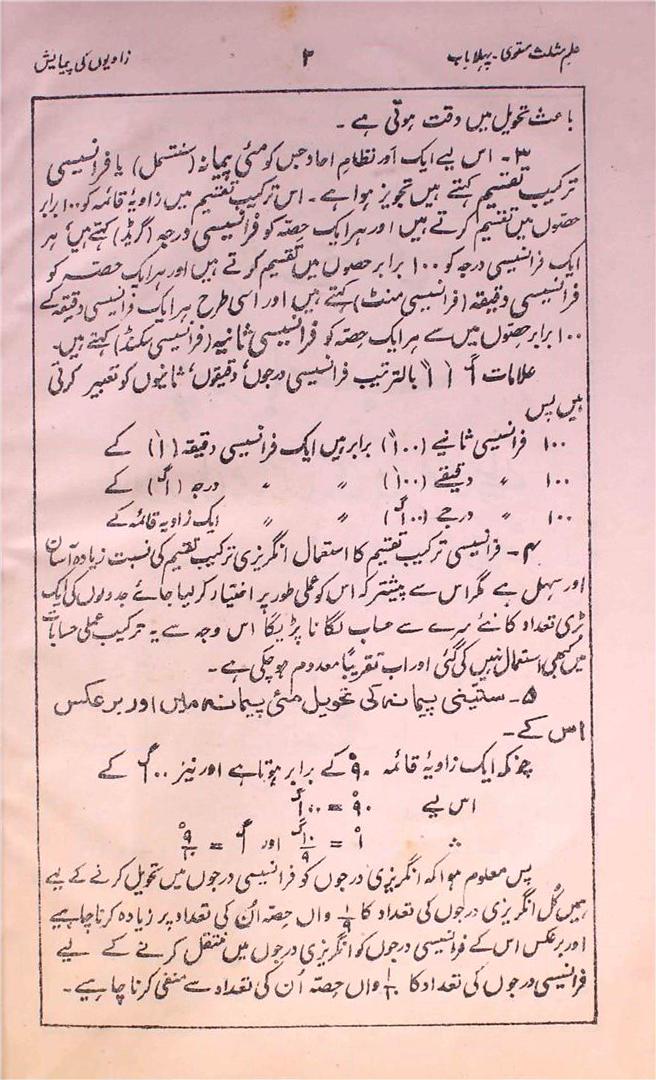 علم مثلث مستوی - پہلا باب ۲ زاویوں کی پیمایش
باعث تحویل میں دقت ہوتی ہے -
۳- اس لیے ایک اور نظامِ احاد جس کو مئی پیمانہ (سنتسمل) یا فرانسیسی
ترکیب تقسیم کہتے ہیں تجویز ہوا ہے - اس ترکیب تقسیم میں زاویۂ قائمہ کو ۱۰۰ برابر
حصوں میں تقسیم کرتے ہیں اور ہر ایک حصّہ کو فرانسیسی درجہ (گریڈ) کہتے ہیں' ہر
ایک فرانسیسی درجہ کو ۱۰۰ برابر حصوں میں تقسیم کرتے ہیں اور ہر ایک حصہ کو
فرانسیسی دقیقہ (فرانسیسی منٹ) کہتے ہیں اور اسی طرح ہر ایک فرانسیسی دقیقہ کے
۱۰۰ برابر حصوں میں سے ہر ایک حصّہ کو فرانسیسی ثانیہ (فرانسیسی سکنڈ) کہتے ہیں۔
علامات ۱گ ۱\ ۱\\ بالترتیب فرانسیسی درجوں' دقیقوں' ثانیوں کو تعبیر کرتی
ہیں پس
۱۰۰ فرانسیسی ثانیے (۱۰۰\\) برابر ہیں ایک فرانسیسی دقیقہ (۱\) کے
۱۰۰ " دقیقے (۱۰۰\) " " درجہ (۱گ) کے
۱۰۰ " درجے (۱۰۰گ) " " ایک زاویہ قائمہ کے
۴- فرانسیسی ترکیب تقسیم کا استعمال انگریزی ترکیب تقسیم کی نسبت زیادہ آسان
اور سہل ہے مگر اس سے پیشتر کہ اس کو عملی طور پر اختیار کر لیا جائے جدولوں کی ایک
بڑی تعداد کا نئے سرے سے حساب لگانا پڑیگا اس وجہ سے یہ ترکیب عملی حسابات
میں کبھی استعمال نہیں کی گئی اور اب تقریباً معدوم ہو چکی ہے۔
۵- ستینی پیمانہ کی تحویل مئی پیمانہ میں اور برعکس
اس کے-
چونکہ ایک زاویۂ قائمہ ۹۰° کے برابر ہوتا ہے اور نیز ۱۰۰گ کے
اس لیے ۹۰° = ۱۰۰گ
∴ ۱° = ۱۰/۹گ اور ۱گ = ۹/۱۰°
پس معلوم ہوا کہ انگریزی درجوں کو فرانسیسی درجوں میں تحویل کرنے کے لیے
ہمیں کُل انگریزی درجوں کی تعداد کا ۱/۹ واں حصّہ اُن کی تعداد پر زیادہ کرنا چاہیے
اور برعکس اس کے فرانسیسی درجوں کو انگریزی درجوں میں منتقل کرنے کے لیے
فرانسیسی درجوں کی تعداد کا ۱/۱۰ واں حصّہ اُن کی تعداد سے منفی کرنا چاہیے۔